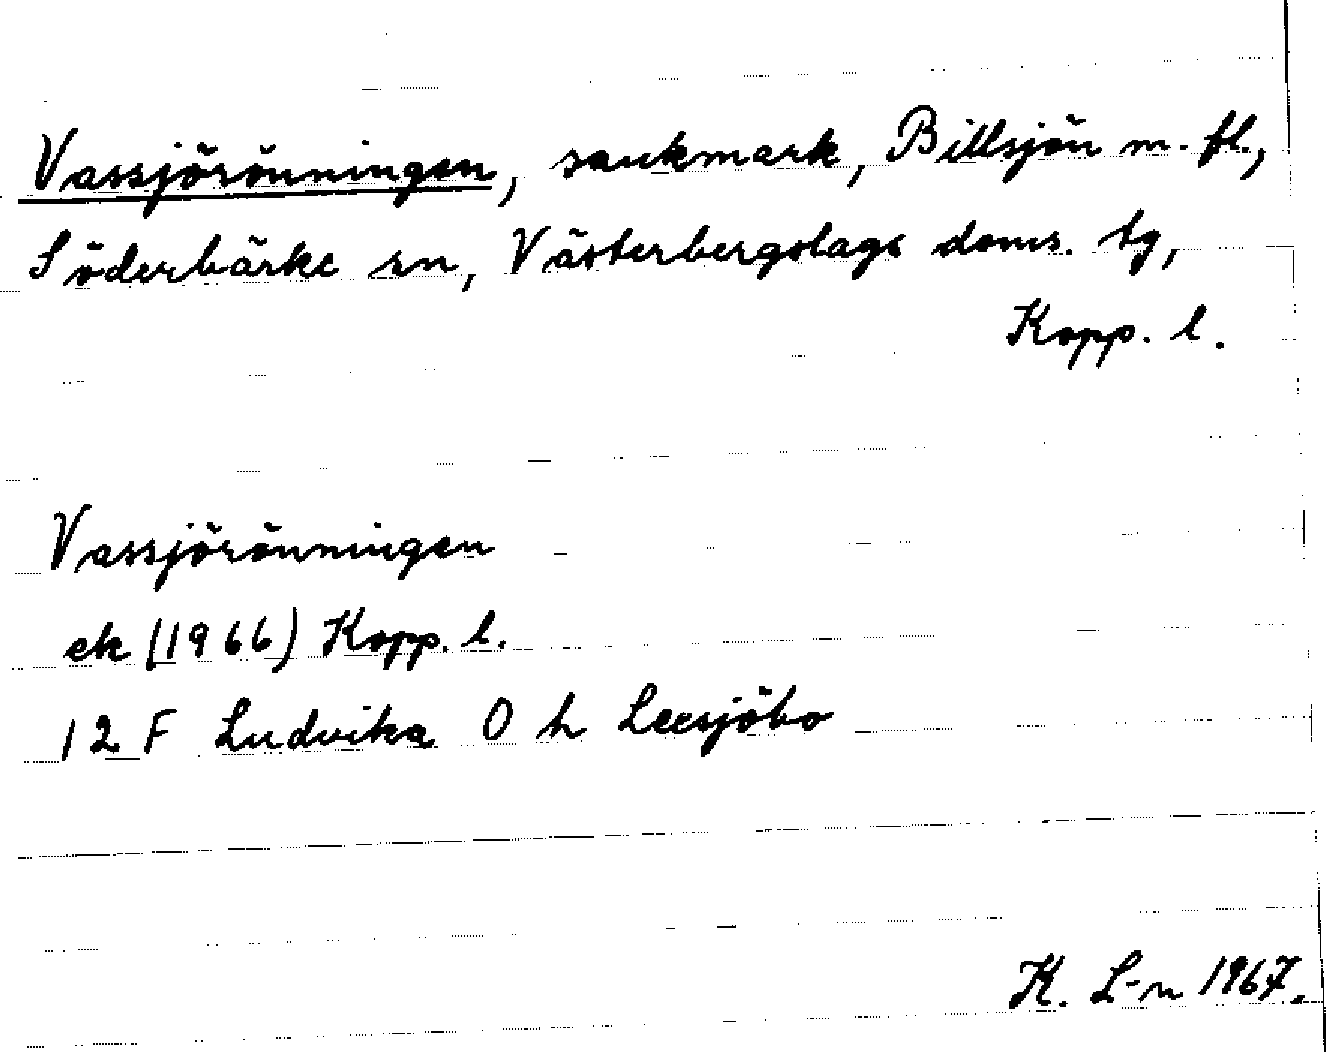 Vassjörönningen, sankmark, Billsjön m. fl.,
Söderbärke sn, Västerbergslags doms. tg,
Kopp. l.
Vassjörönningen
ek (1966) Kopp. l.
12 F Ludvika O h Leesjöbo
K. L-n 1967.